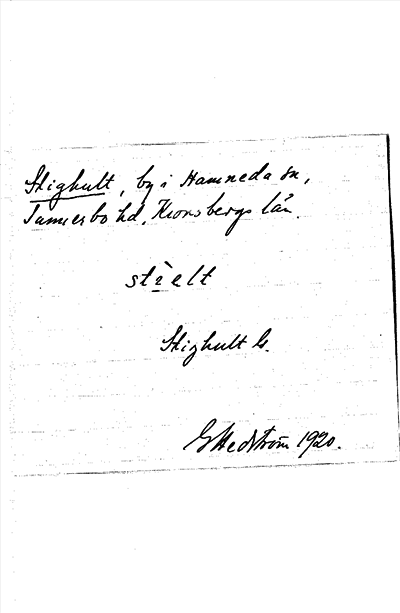 Stighult, by i Hamneda sn,
Sunnerbo hd, Kronobergs län.
stìelt
Stighult G.
G Hedström 1920.